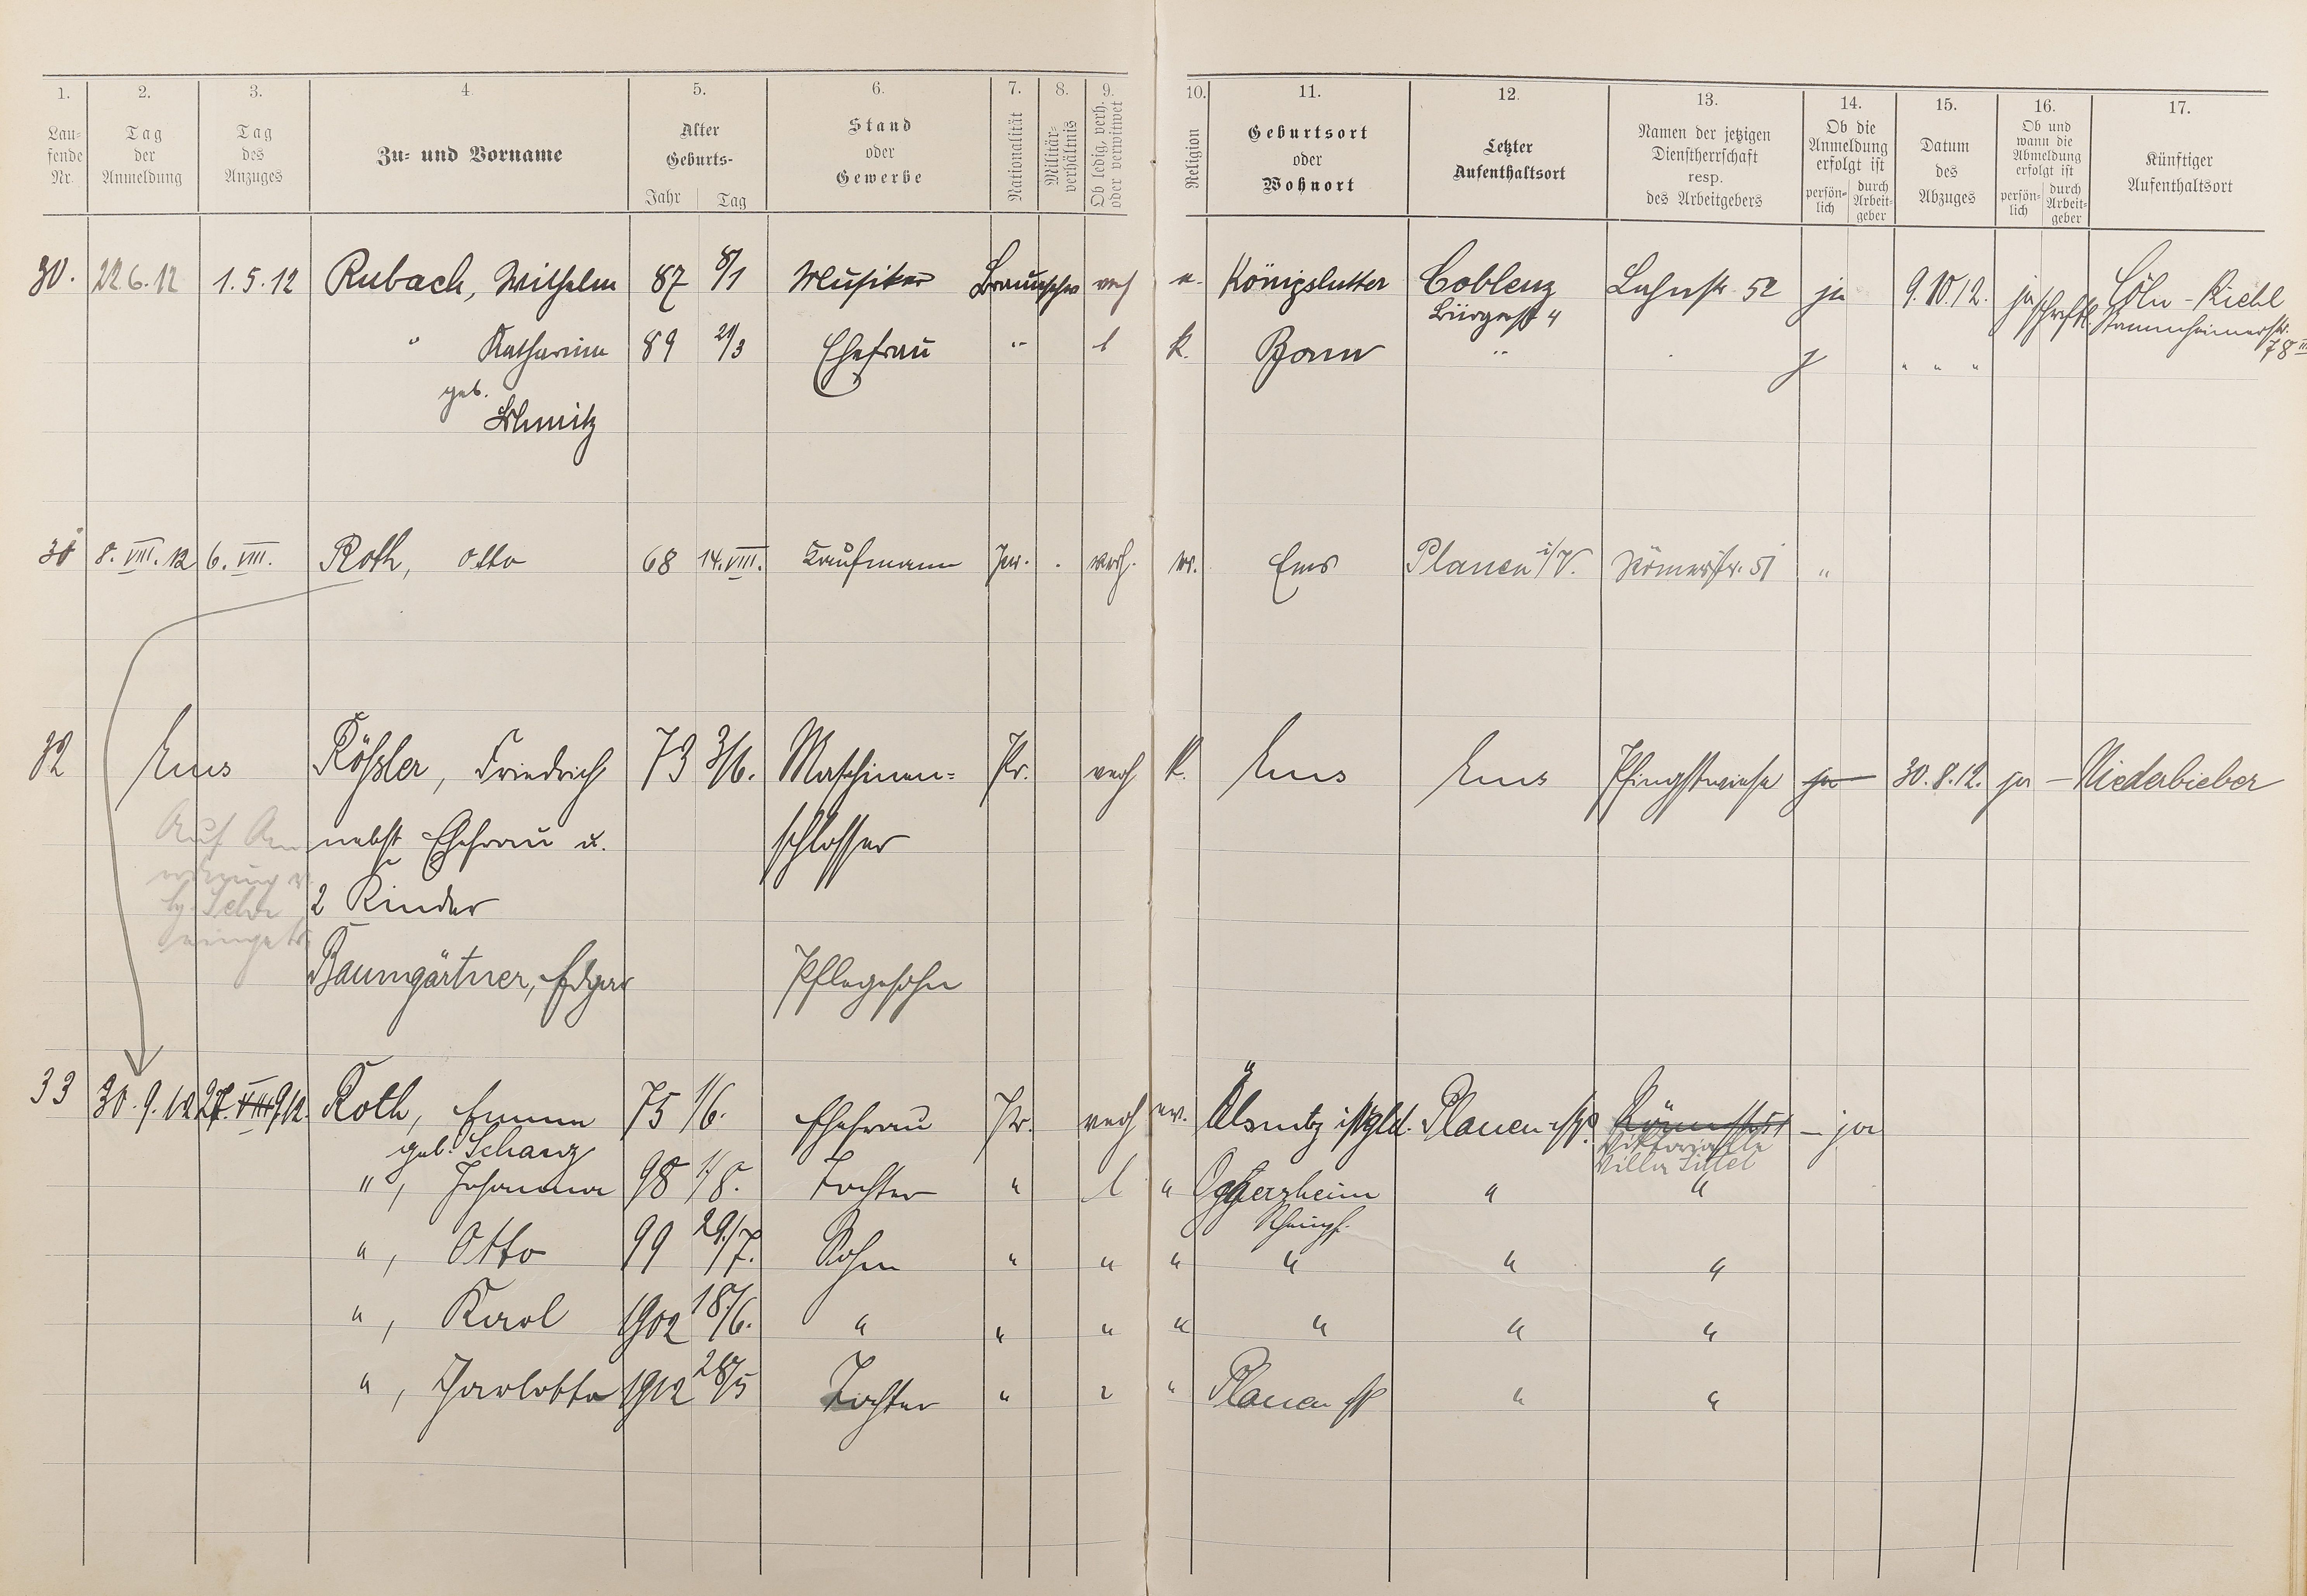 1. 2. 3. 4. 5. 6. 7. 8. 9. 10. 11. 12. 13. 14. 15. 16. 17.
Lau- fende Nr.
Tag der Anmeldung
Tag des Anzuges
Zu- und Vorname
Alter Geburts- Jahr Tag
Stand oder Gewerbe
Nationalität
Militär- verhältnis
Ob ledig, verh. oder verwitwet
Religion
Geburtsort oder Wohnort
Letzter Aufenthaltsort
Namen der jetzigen Dienstherrschaft resp. des Arbeitgebers
Ob die Anmeldung erfolgt ist persön- lich durch Arbeit- geber
Datum des Abzuges
Ob und wann die Abmeldung erfolgt ist persön- lich durch Arbeit- geber
Künftiger Aufenthaltsort
30. 22.6.12 1.5.12 Rubach, Wilhelm 87 8/1 Musiker Braunschw verh Königslutter Coblenz Lahnstr 52 ja 9.10.12. ja schriftl. Cöln-Riehl
Bürgerstr 4 Stammheimerstr. 78 II
" Katharina 89 21/3 Ehefrau " k. Bonn " " " "
geb.
Schmitz
31 8. VIII. 12 6. VIII. Roth, Otto 68 14. VIII. Kaufmann Pr. . verh. Ems Plauen i/V. Römerstr. 51 "
32 Ems Rößler, Friedrich 73 3/6. Maschinen- Pr. verh k. Ems Ems Pfingstwiese ja 30.8.12. ja — Niederbieber
Auf An nebst Ehefrau u. schlosser
2 Kinder
Baumgärtner, Edgar Pflegesohn
33 30.9.12 27. VIII 9.12. Roth, Emma 75 1/6. Ehefrau Pr. verh ev. Ölsnitz i/Vgld. Plauen i/V. Römerstr 51 — ja
geb. Schanz Villa
", Johanna 98 1/8. Tochter " l " Oggersheim " "
Rheinpf.
", Otto 99 29./7. Sohn " " " " " "
", Karl 1902 18/6. " " " " " " "
", Charlotte 1912 28/5 Tochter " " " Plauen i/V " "